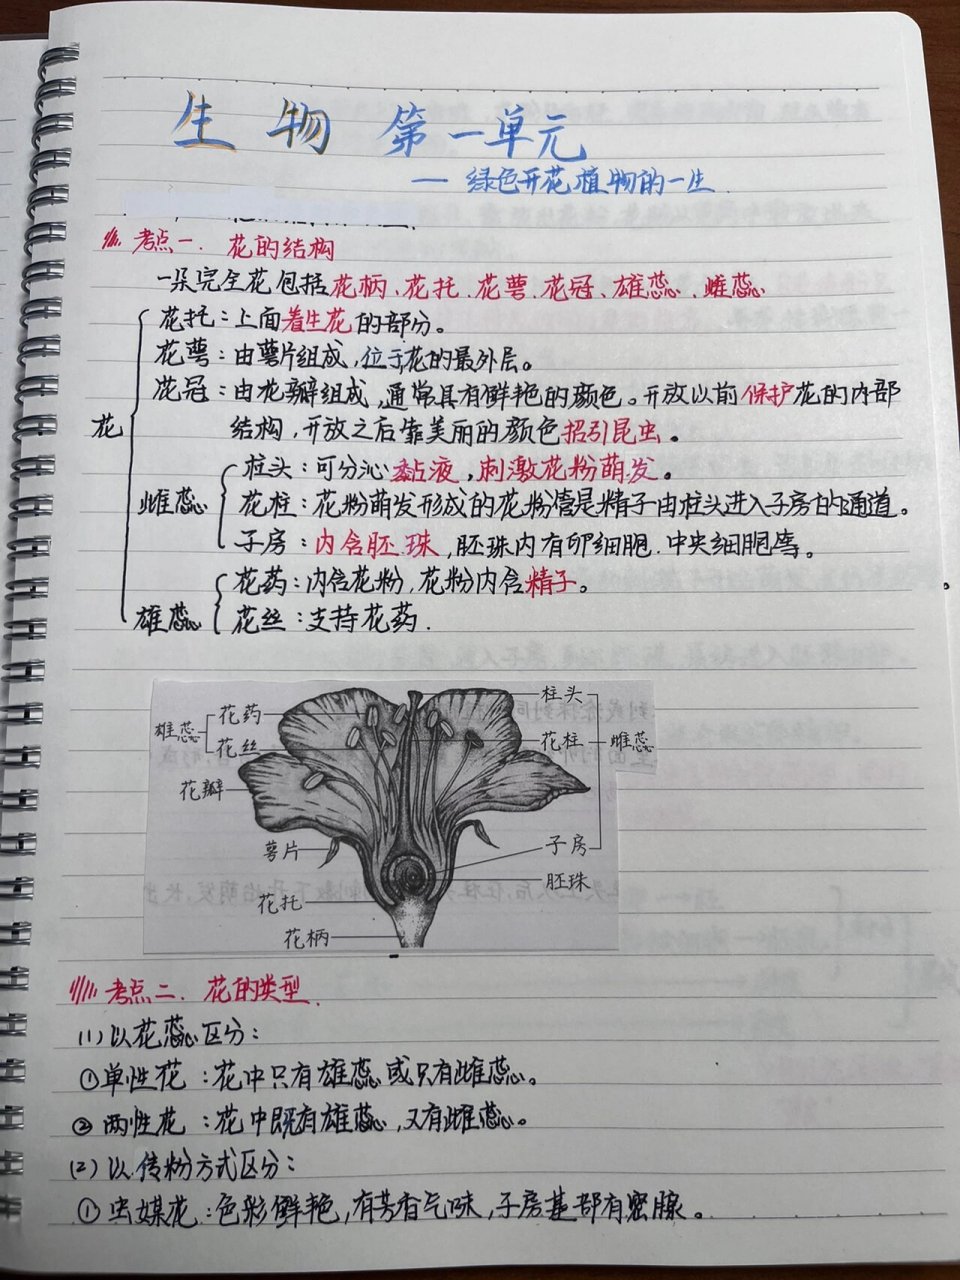 生物 第一单元
— 绿色开花植物的一生
考点一. 花的结构
一朵完全花包括花柄、花托、花萼、花冠、雄蕊、雌蕊
花托：上面着生花的部分。
花萼：由萼片组成,位于花的最外层。
花冠：由花瓣组成,通常具有鲜艳的颜色。开放以前保护花的内部
花
结构,开放之后靠美丽的颜色招引昆虫。
柱头：可分沁黏液,刺激花粉萌发。
雌蕊
花柱：花粉萌发形成的花粉管是精子由柱头进入子房的通道。
子房：内含胚珠,胚珠内有卵细胞.中央细胞等。
花药：内含花粉,花粉内含精子。
雄蕊
花丝：支持花药.
柱头
花药
雄蕊
花丝
花柱
雌蕊
花瓣
萼片
子房
胚珠
花托
花柄
考点二. 花的类型
(1)以花蕊区分：
①单性花：花中只有雄蕊或只有雌蕊。
②两性花：花中既有雄蕊,又有雌蕊。
(2)以传粉方式区分：
①虫媒花：色彩鲜艳,有芳香气味,子房基部有蜜腺。